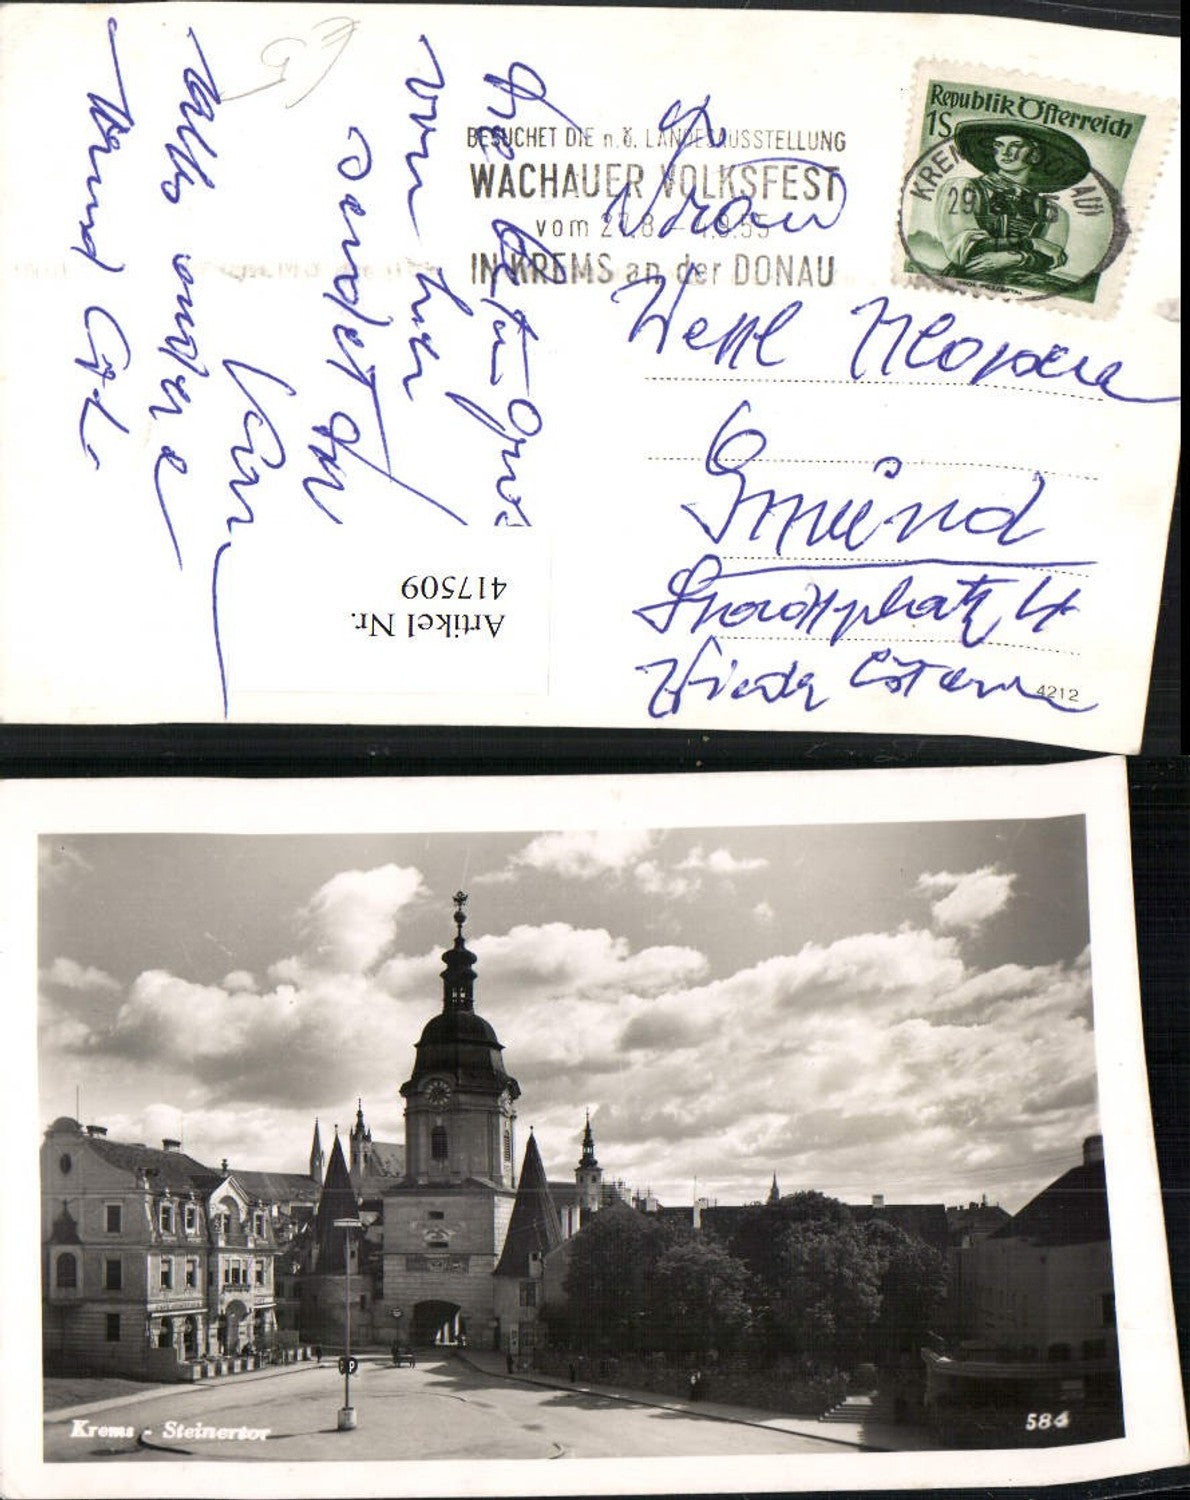 BESUCHET DIE n.ö. LANDESAUSSTELLUNG
WACHAUER VOLKSFEST
vom 27.8. – 4.9.55
IN KREMS an der DONAU
Republik Österreich
1S
KREMS DONAU
29
Frau
Gmünd
Stadtplatz 4
Nieder Österr
4212
von hier
sendet
alles andere
Artikel Nr.
417509
Krems - Steinertor
584
P